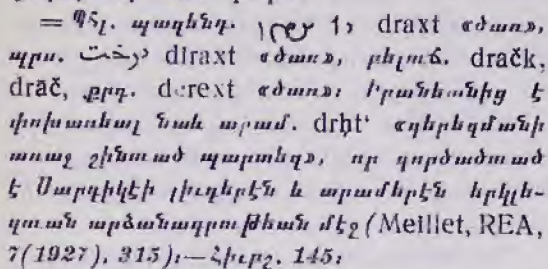 = Պհլ. պազենդ. 1, draxt «ծառ»,
պրս. درخت diraxt «ծառ», բելուճ. dračk,
drāč, քրդ. derext «ծառ»։ Իրանեանից է
փոխառեալ նաև արամ. drḥt‘ «գերեզմանի
առաջ շինուած պարտէզ», որ գործածուած
է Մարգիկէի լիւդերէն և արամերէն երկլե-
զուան արձանագրութեան մէջ (Meillet, REA,
7(1927), 315)։—Հիւբշ. 145։